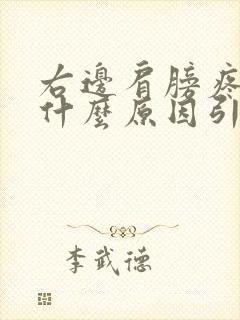 右邊肩膀疼
什麼原因引
李武德